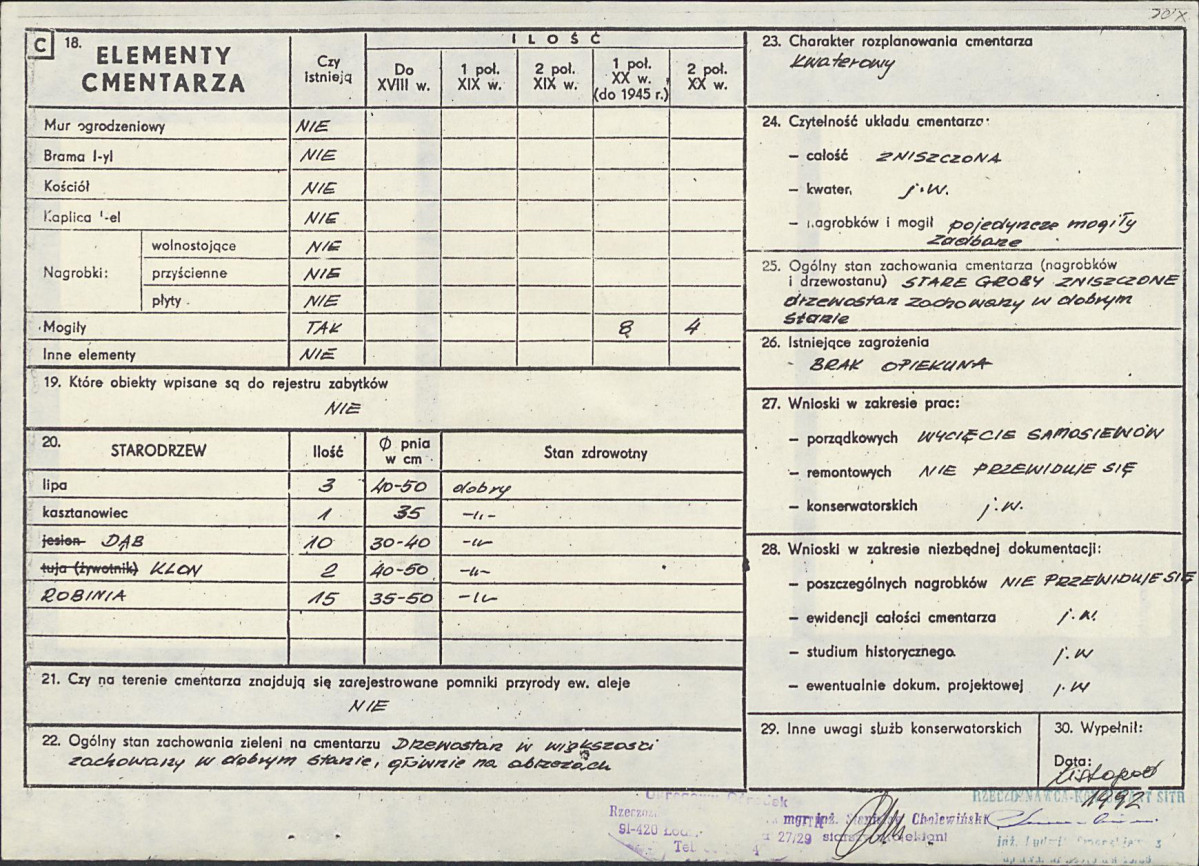 C 18. ELEMENTY CMENTARZA
Czy istnieją
ILOŚĆ
Do XVIII w.
1 poł. XIX w.
2 poł. XIX w.
1 poł. XX w. (do 1945 r.)
2 poł. XX w.
Mur ogrodzeniowy NIE
Brama I-yl NIE
Kościół NIE
Kaplica -el NIE
Nagrobki:
wolnostojące NIE
przyścienne NIE
płyty NIE
Mogiły TAK 8 4
Inne elementy NIE
19. Które obiekty wpisane są do rejestru zabytków
NIE
20. STARODRZEW Ilość Ø pnia w cm Stan zdrowotny
lipa 3 40-50 dobry
kasztanowiec 1 35 -"-
jesion DĄB 10 30-40 -"-
tuja (żywotnik) KLON 2 40-50 -"-
ROBINIA 15 35-50 -"-
21. Czy na terenie cmentarza znajdują się zarejestrowane pomniki przyrody ew. aleje
NIE
22. Ogólny stan zachowania zieleni na cmentarzu Drzewostan w większości
zachowany w dobrym stanie, głównie na obrzeżach
23. Charakter rozplanowania cmentarza
Kwaterowy
24. Czytelność układu cmentarza:
– całość ZNISZCZONA
– kwater, j.w.
– nagrobków i mogił pojedyncze mogiły
zadbane
25. Ogólny stan zachowania cmentarza (nagrobków
i drzewostanu) STARE GROBY ZNISZCZONE
drzewostan zachowany w dobrym
stanie
26. Istniejące zagrożenia
- BRAK OPIEKUNA
27. Wnioski w zakresie prac:
– porządkowych WYCIĘCIE SAMOSIEWÓW
– remontowych NIE PRZEWIDUJE SIĘ
– konserwatorskich j.w.
28. Wnioski w zakresie niezbędnej dokumentacji:
– poszczególnych nagrobków NIE PRZEWIDUJE SIĘ
– ewidencji całości cmentarza j.w.
– studium historycznego. j.w
– ewentualnie dokum. projektowej j.w
29. Inne uwagi służb konserwatorskich
30. Wypełnił:
Data:
listopad
1992
91-420
27/29
Tel
mgr inż. Cholewiński
RZECZOZNAWCA SITR
inż.